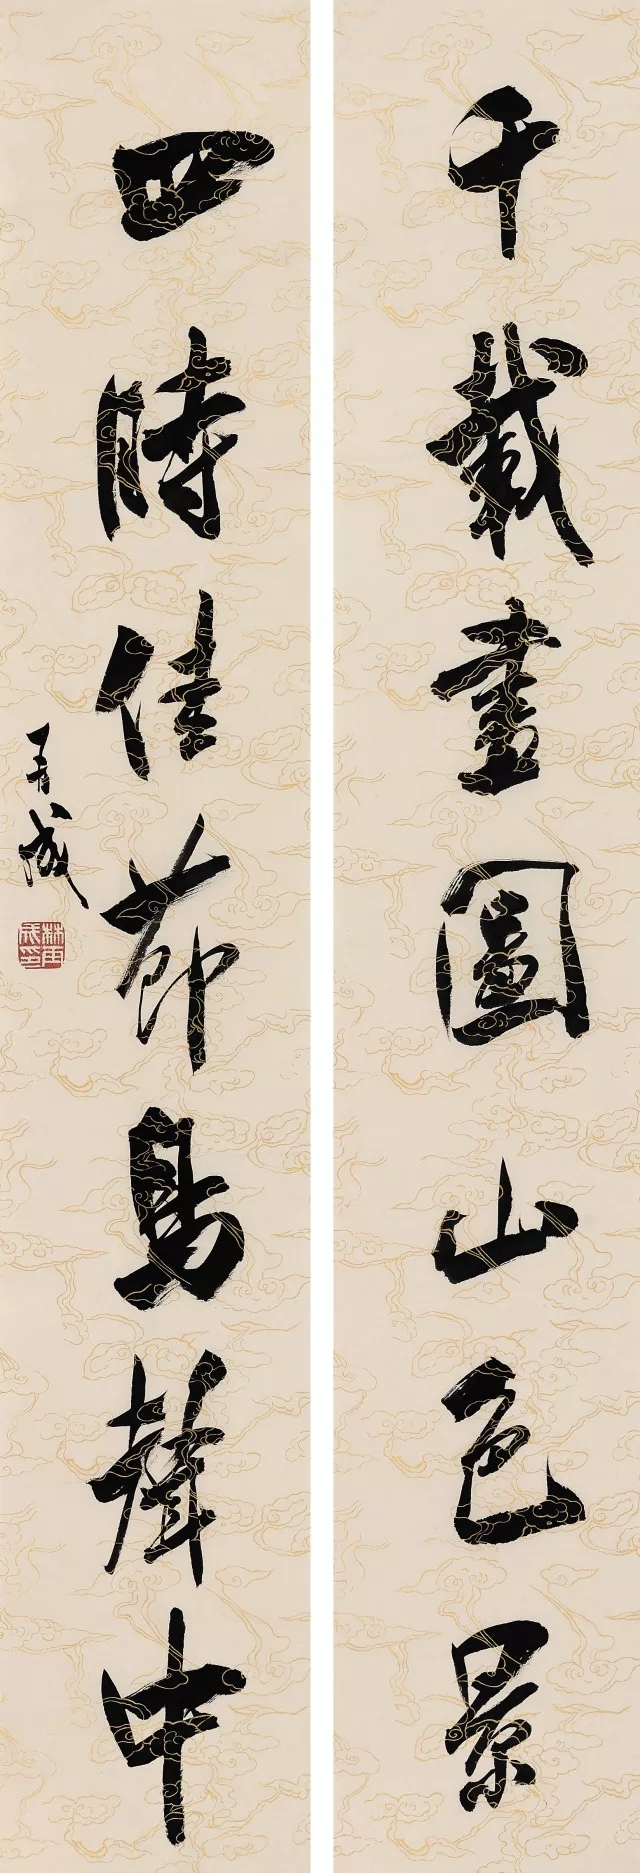 千載畫圖山色景
四時佳節鳥聲中
再成